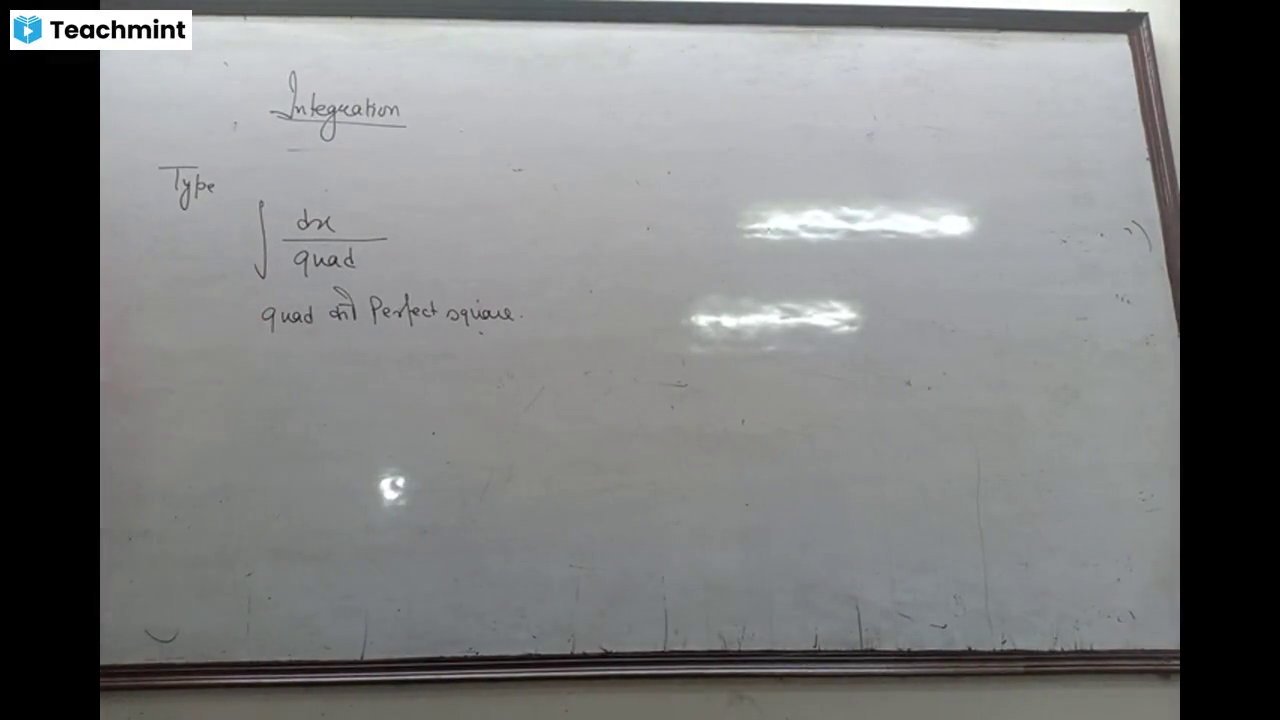 Teachmint
Integration
Type
∫ dx
quad
quad को Perfect square.